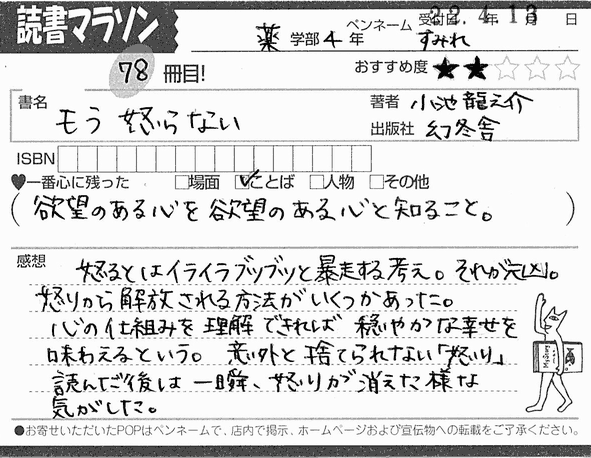 読書マラソン
ペンネーム 受付日 22年 4月 13日
薬 学部 4 年 すみれ
78 冊目! おすすめ度 ★★☆☆☆
書名 もう 怒らない
著者 小池龍之介
出版社 幻冬舎
ISBN
♥一番心に残った □場面 ☑ことば □人物 □その他
(欲望のある心を欲望のある心と知ること。)
感想 怒るとはイライラブツブツと暴走する考え。それが元凶。
怒りから解放される方法がいくつかあった。
心の仕組みを理解できれば 穏やかな幸せを
味わえるという。意外と捨てられない「怒り」
読んだ後は一瞬、怒りが消えた様な
気がした。
●お寄せいただいたPOPはペンネームで、店内で掲示、ホームページおよび宣伝物への転載をご了承ください。